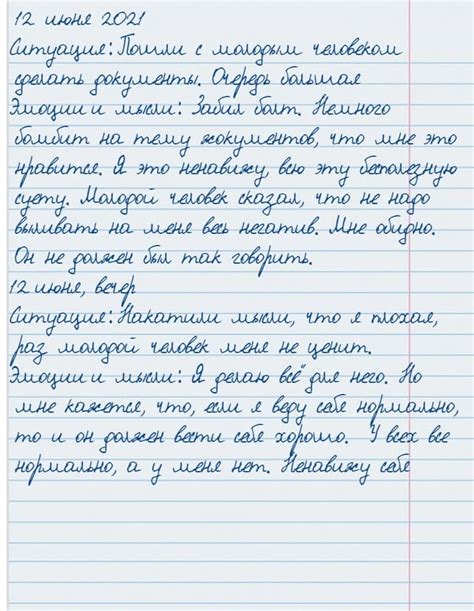 12 июня 2021
Ситуация: Пошли с молодым человеком
сделать документы. Очередь большая
Эмоции и мысли: Забил болт. Немного
бомбит на тему жокументов, что мне это
нравится. Я это ненавижу, всю эту бесполезную
суету. Молодой человек сказал, что не надо
выливать на меня весь негатив. Мне обидно.
Он не должен был так говорить.
12 июня, вечер
Ситуация: Накатили мысли, что я плохая,
раз молодой человек меня не ценит.
Эмоции и мысли: Я делаю всё для него. Но
мне кажется, что, если я веду себе нормально,
то и он должен вести себе хорошо. У всех все
нормально, а у меня нет. Ненавижу себе